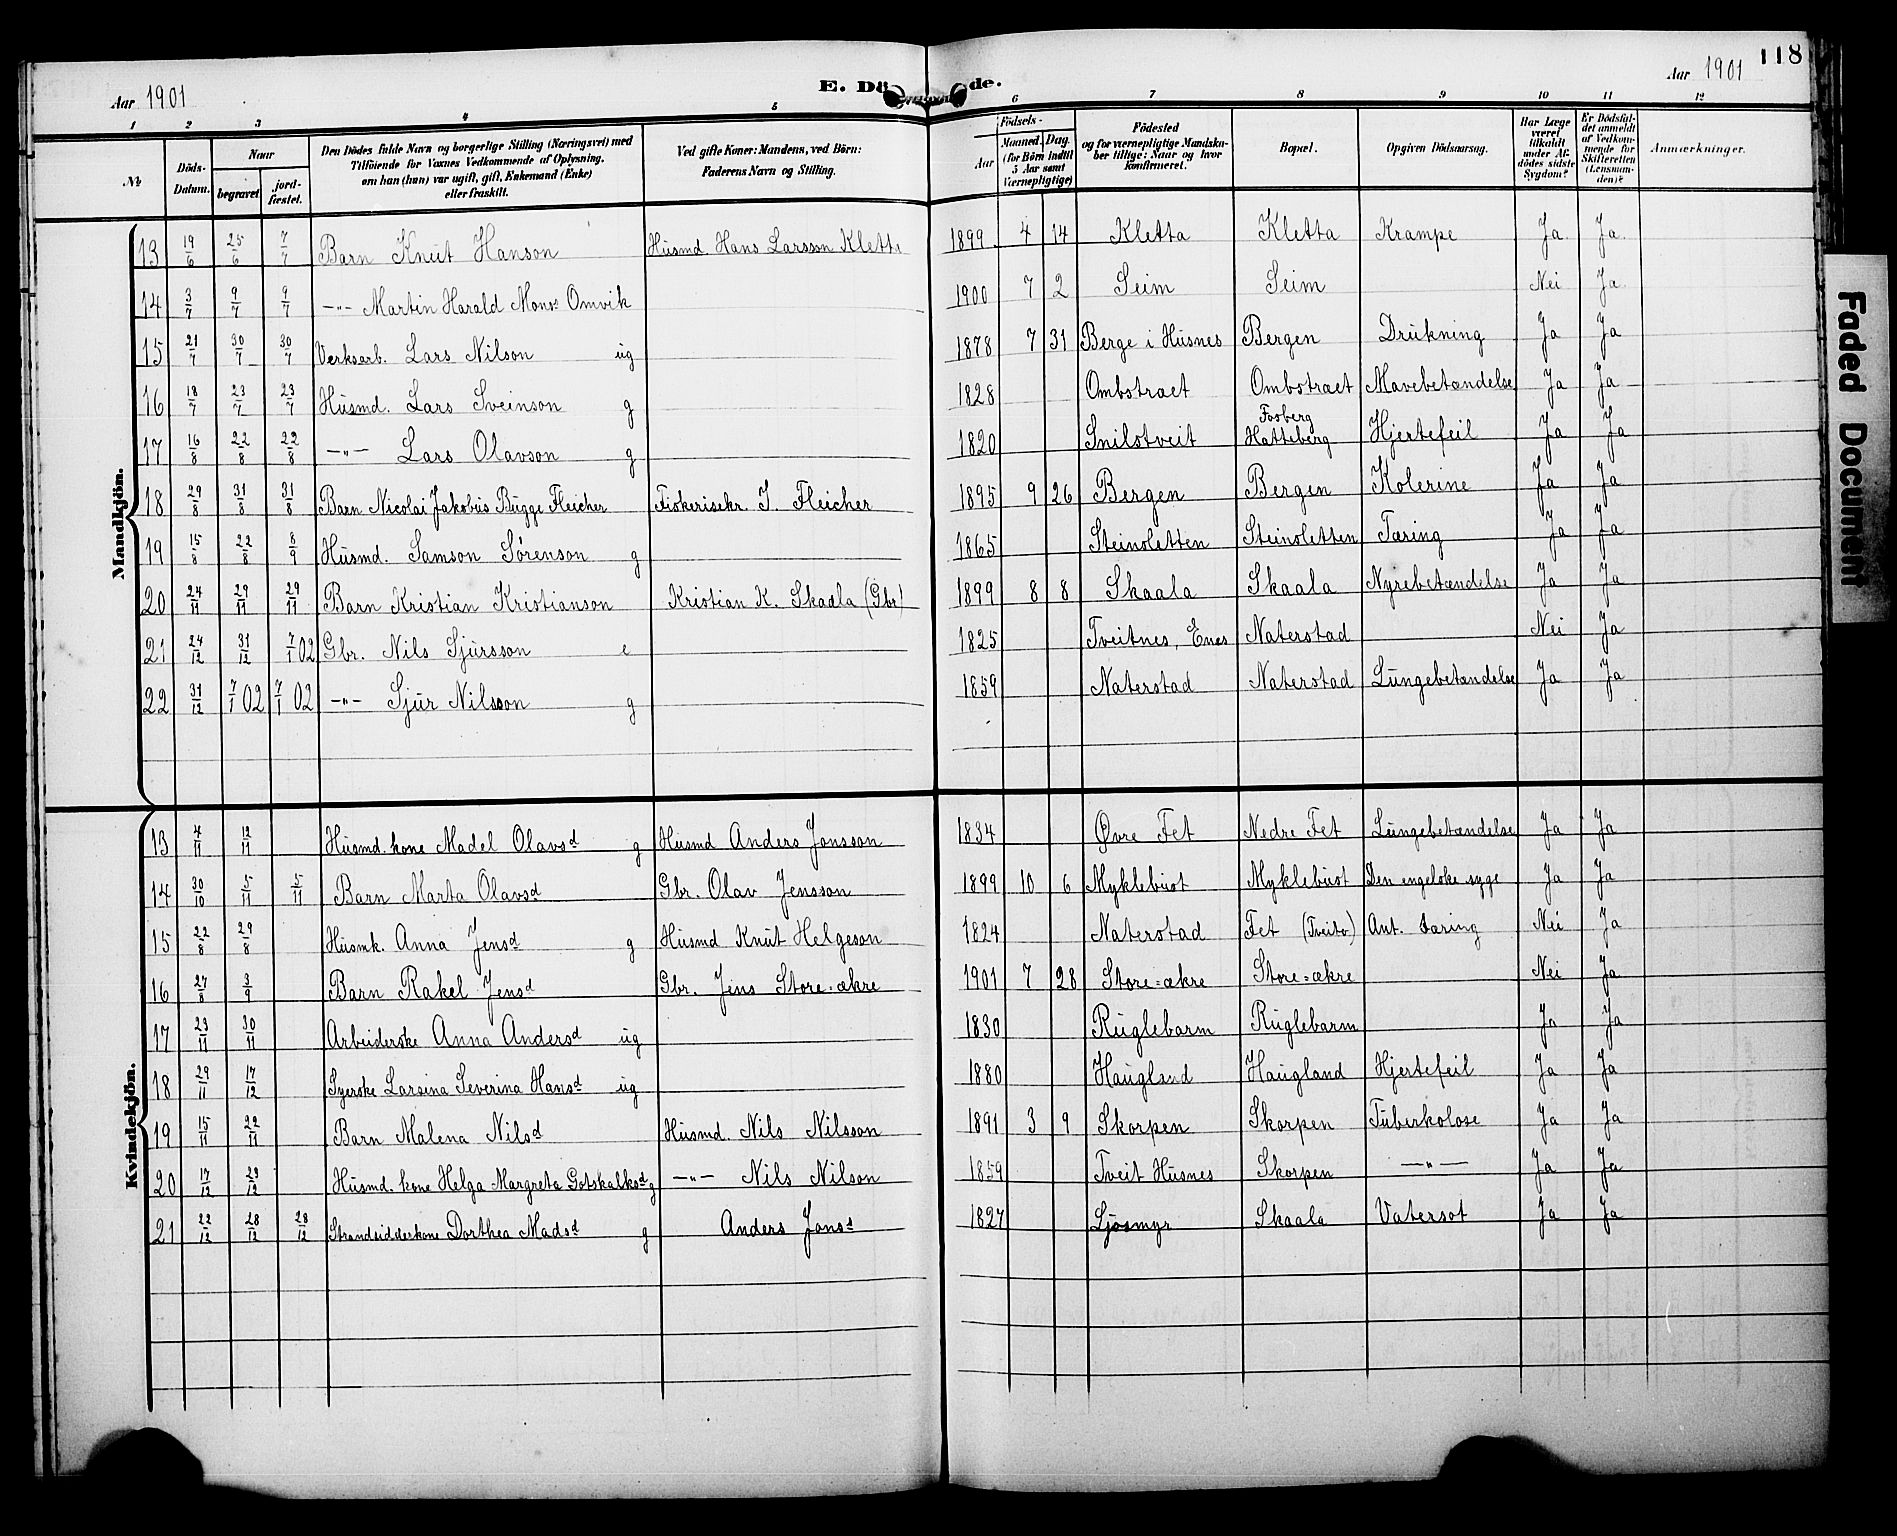 118
Aar 1901 E. Dö de. Aar 1901
1 2 3 4 5 6 7 8 9 10 11 12
№ Döds-Datum. Naar begravet jordfæstet. Den Dödes fulde Navn og borgerlige Stilling (Næringsvei) med Tilföiende for Voxnes Vedkommende af Oplysning, om han (hun) var ugift, gift, Enkemand (Enke) eller fraskilt. Ved gifte Koner: Mandens, ved Börn: Faderens Navn og Stilling. Födsels- Aar Maaned Dag. (for Börn indtil 5 Aar samt Værnepligtige) Födested og for værnepligtige Mandskaber tillige: Naar og hvor konfirmeret. Bopæl. Opgiven Dödsaarsag. Har Læge været tilkaldt under Afdödes sidste Sygdom? Er Dödsfaldet anmeldt af Vedkommende for Skifteretten (Lensmanden)? Anmærkninger.
Mandkjön.
13 19/6 25/6 7/7 Barn Knut Hanson Husmd. Hans Larsson Kletta 1899 4 14 Kletta Kletta Krampe Ja Ja
14 3/7 9/7 9/7 -"- Martin Harald Mons. Omvik 1900 7 2 Seim Seim Nei Ja
15 21/7 30/7 30/7 Verksarb. Lars Nilson ug 1878 7 31 Berge i Husnes Bergen Drukning Ja Ja
16 18/7 23/7 23/7 Husmd. Lars Sveinson g 1828 Ombstraet Ombstraet Mavebetændelse Ja Ja
17 16/8 22/8 22/8 -"- Lars Olavson g 1820 Snilstveit Fosberg Hatteberg Hjertefeil Ja Ja
18 29/8 31/8 31/8 Barn Nicolai Jakobus Bugge Fleicher Fiskerisekr. J. Fleicher 1895 9 26 Bergen Bergen Kolerine Ja Ja
19 15/8 22/8 8/9 Husmd. Samson Sørenson g 1865 Steinsletten Steinsletten Tæring Ja Ja
20 24/11 29/11 29/11 Barn Kristian Kristianson Kristian K. Skaala (Gbr) 1899 8 8 Skaala Skaala Nyrebetændelse Ja Ja
21 24/12 31/12 7/1 02 Gbr. Nils Sjursson e 1825 Tveitnes, Enes Naterstad Nei Ja
22 31/12 7/1 02 7/1 02 -"- Sjur Nilsson g 1859 Naterstad Naterstad Lungebetændelse Ja Ja
Kvindekjön.
13 4/11 12/11 Husmd. kone Madel Olavsd g Husmd Anders Jonsson 1834 Øvre Fet Nedre Fet Lungebetændelse Ja Ja
14 30/10 5/11 5/11 Barn Marta Olavsd Gbr. Olav Jensson 1899 10 6 Myklebust Myklebust Den engelske syge Ja Ja
15 22/8 29/8 Husmk. Anna Jensd g Husmd Knut Helgeson 1824 Naterstad Fet (Tveito) Ant. tæring Nei Ja
16 27/8 3/9 Barn Rakel Jensd Gbr. Jens Store=økre 1901 7 28 Store=økre Store=økre Nei Ja
17 23/11 30/11 Arbeiderske Anna Andersd ug 1830 Ruglebarm Ruglebarm Ja Ja
18 29/11 17/12 Syerske Larsina Severina Hansd ug 1880 Haugland Haugland Hjertefeil Ja Ja
19 15/11 22/11 Barn Malena Nilsd Husmd. Nils Nilsson 1891 3 9 Skorpen Skorpen Tuberkolose Ja Ja
20 17/12 23/12 Husmd. kone Helga Margreta Gotskalksd g -"- Nils Nilson 1859 Tveit Husnes Skorpen -"- Ja Ja
21 22/12 28/12 28/12 Strandsidderkone Dorthea Madsd g Anders Jons. 1827 Ljosmyr Skaala Vatersot Ja Ja
Faded Document